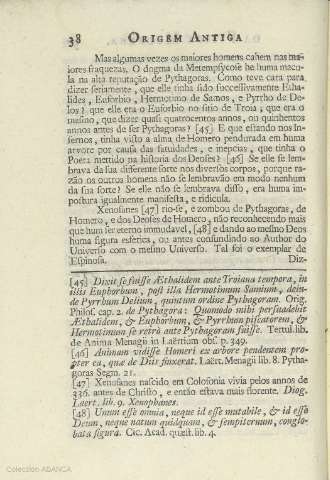 38 ORIGEM ANTIGA
Mas algumas vezes os maiores homens cahem nas ma-
iores fraquezas. O dogma da Metempsycose he huma macu-
la na alta reputação de Pythagoras. Como teve cara para
dizer seriamente, que elle tinha sido successivamente Etha-
lides, Euforbio, Hermotimo de Samos, e Pyrrho de De-
los? que elle era o Euforbio no sitio de Troia, que era o
mesmo, que dizer quasi quatrocentos annos, ou quinhentos
annos antes de ser Pythagoras? [45] E que estando nos In-
fernos, tinha visto a alma de Homero pendurada em huma
arvore por causa das fatuidades, e inepcias, que tinha o
Poeta mettido na historia dos Deoses? [46] Se elle se lem-
brava da sua differente sorte nos diversos corpos, porque ra-
zão os outros homens não se lembravão em modo nenhum
da sua sorte? Se elle não se lembrava disso, era huma im-
postura igualmente manifesta, e ridicula.
Xenofanes [47] rio-se, e zombou de Pythagoras, de
Homero, e dos Deoses de Homero, não reconhecendo mais
que hum ser eterno immudavel, [48] e dando ao mesmo Deos
huma figura esferica, ou antes confundindo ao Author do
Universo com o mesmo Universo. Tal foi o exemplar de
Espinosa. Diz-
[45] Dixit se fuisse Æthalidem ante Troiana tempora, in
iliis Euphorbum, post illa Hermotimum Samium, dein-
de Pyrrhum Delium, quintum ordine Pythagoram. Orig.
Philos. cap. 2. de Pythagora: Quomodo mihi persuadebit
Æthalidem, & Euphorbum, & Pyrrhum piscatorem, &
Hermotimum se retrò ante Pythagoram fuisse. Tertul. lib.
de Anima Menagii in Laërtium obs. p. 349.
[46] Animam vidisse Homeri ex arbore pendentem pro-
pter ea, quæ de Diis finxerat. Laërt. Menagii lib. 8. Pytha-
goras Segm. 21.
[47] Xenofanes nascido em Colofonia vivia pelos annos de
336. antes de Christo, e então estava mais florente. Diog.
Laert. lib. 9. Xenophanes.
[48] Unum esse omnia, neque id esse mutabile, & id esse
Deum, neque natum quidquam, & sempiternum, conglo-
bata figurâ. Cic. Acad. quæst. lib. 4.
Coleccion ABANCA